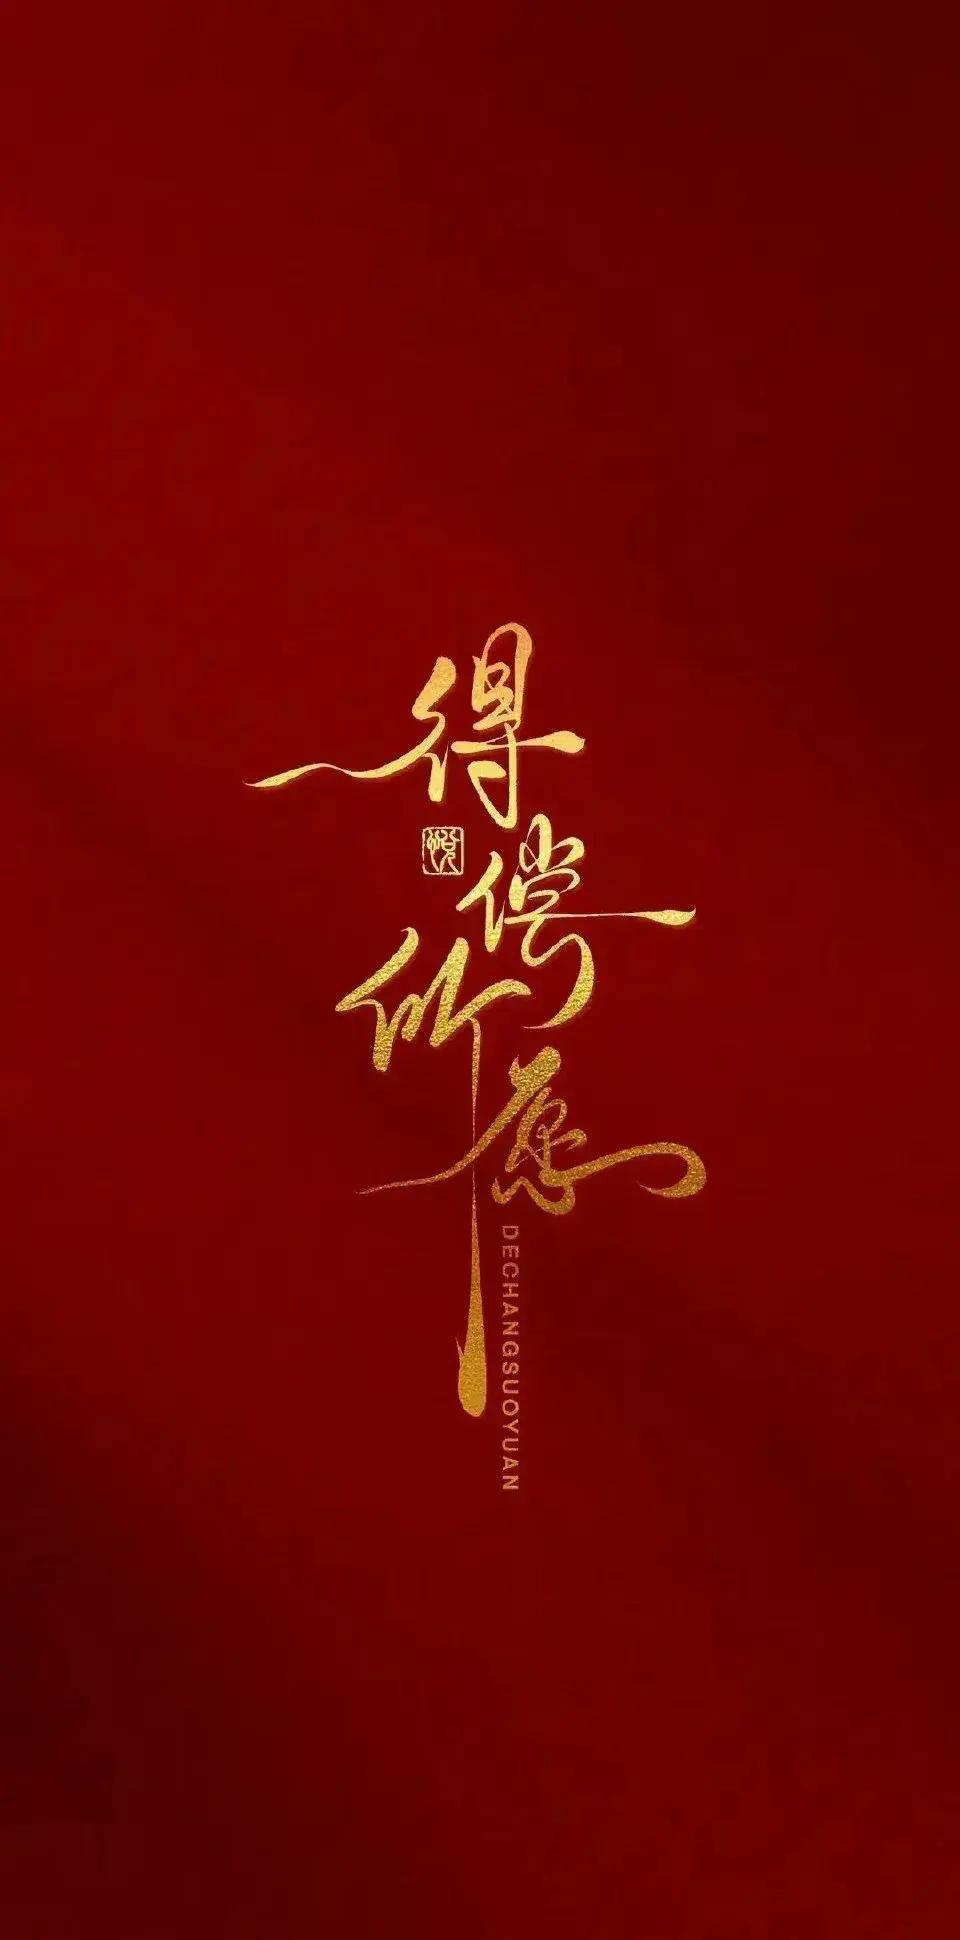 得偿所愿
DECHANGSUOYUAN